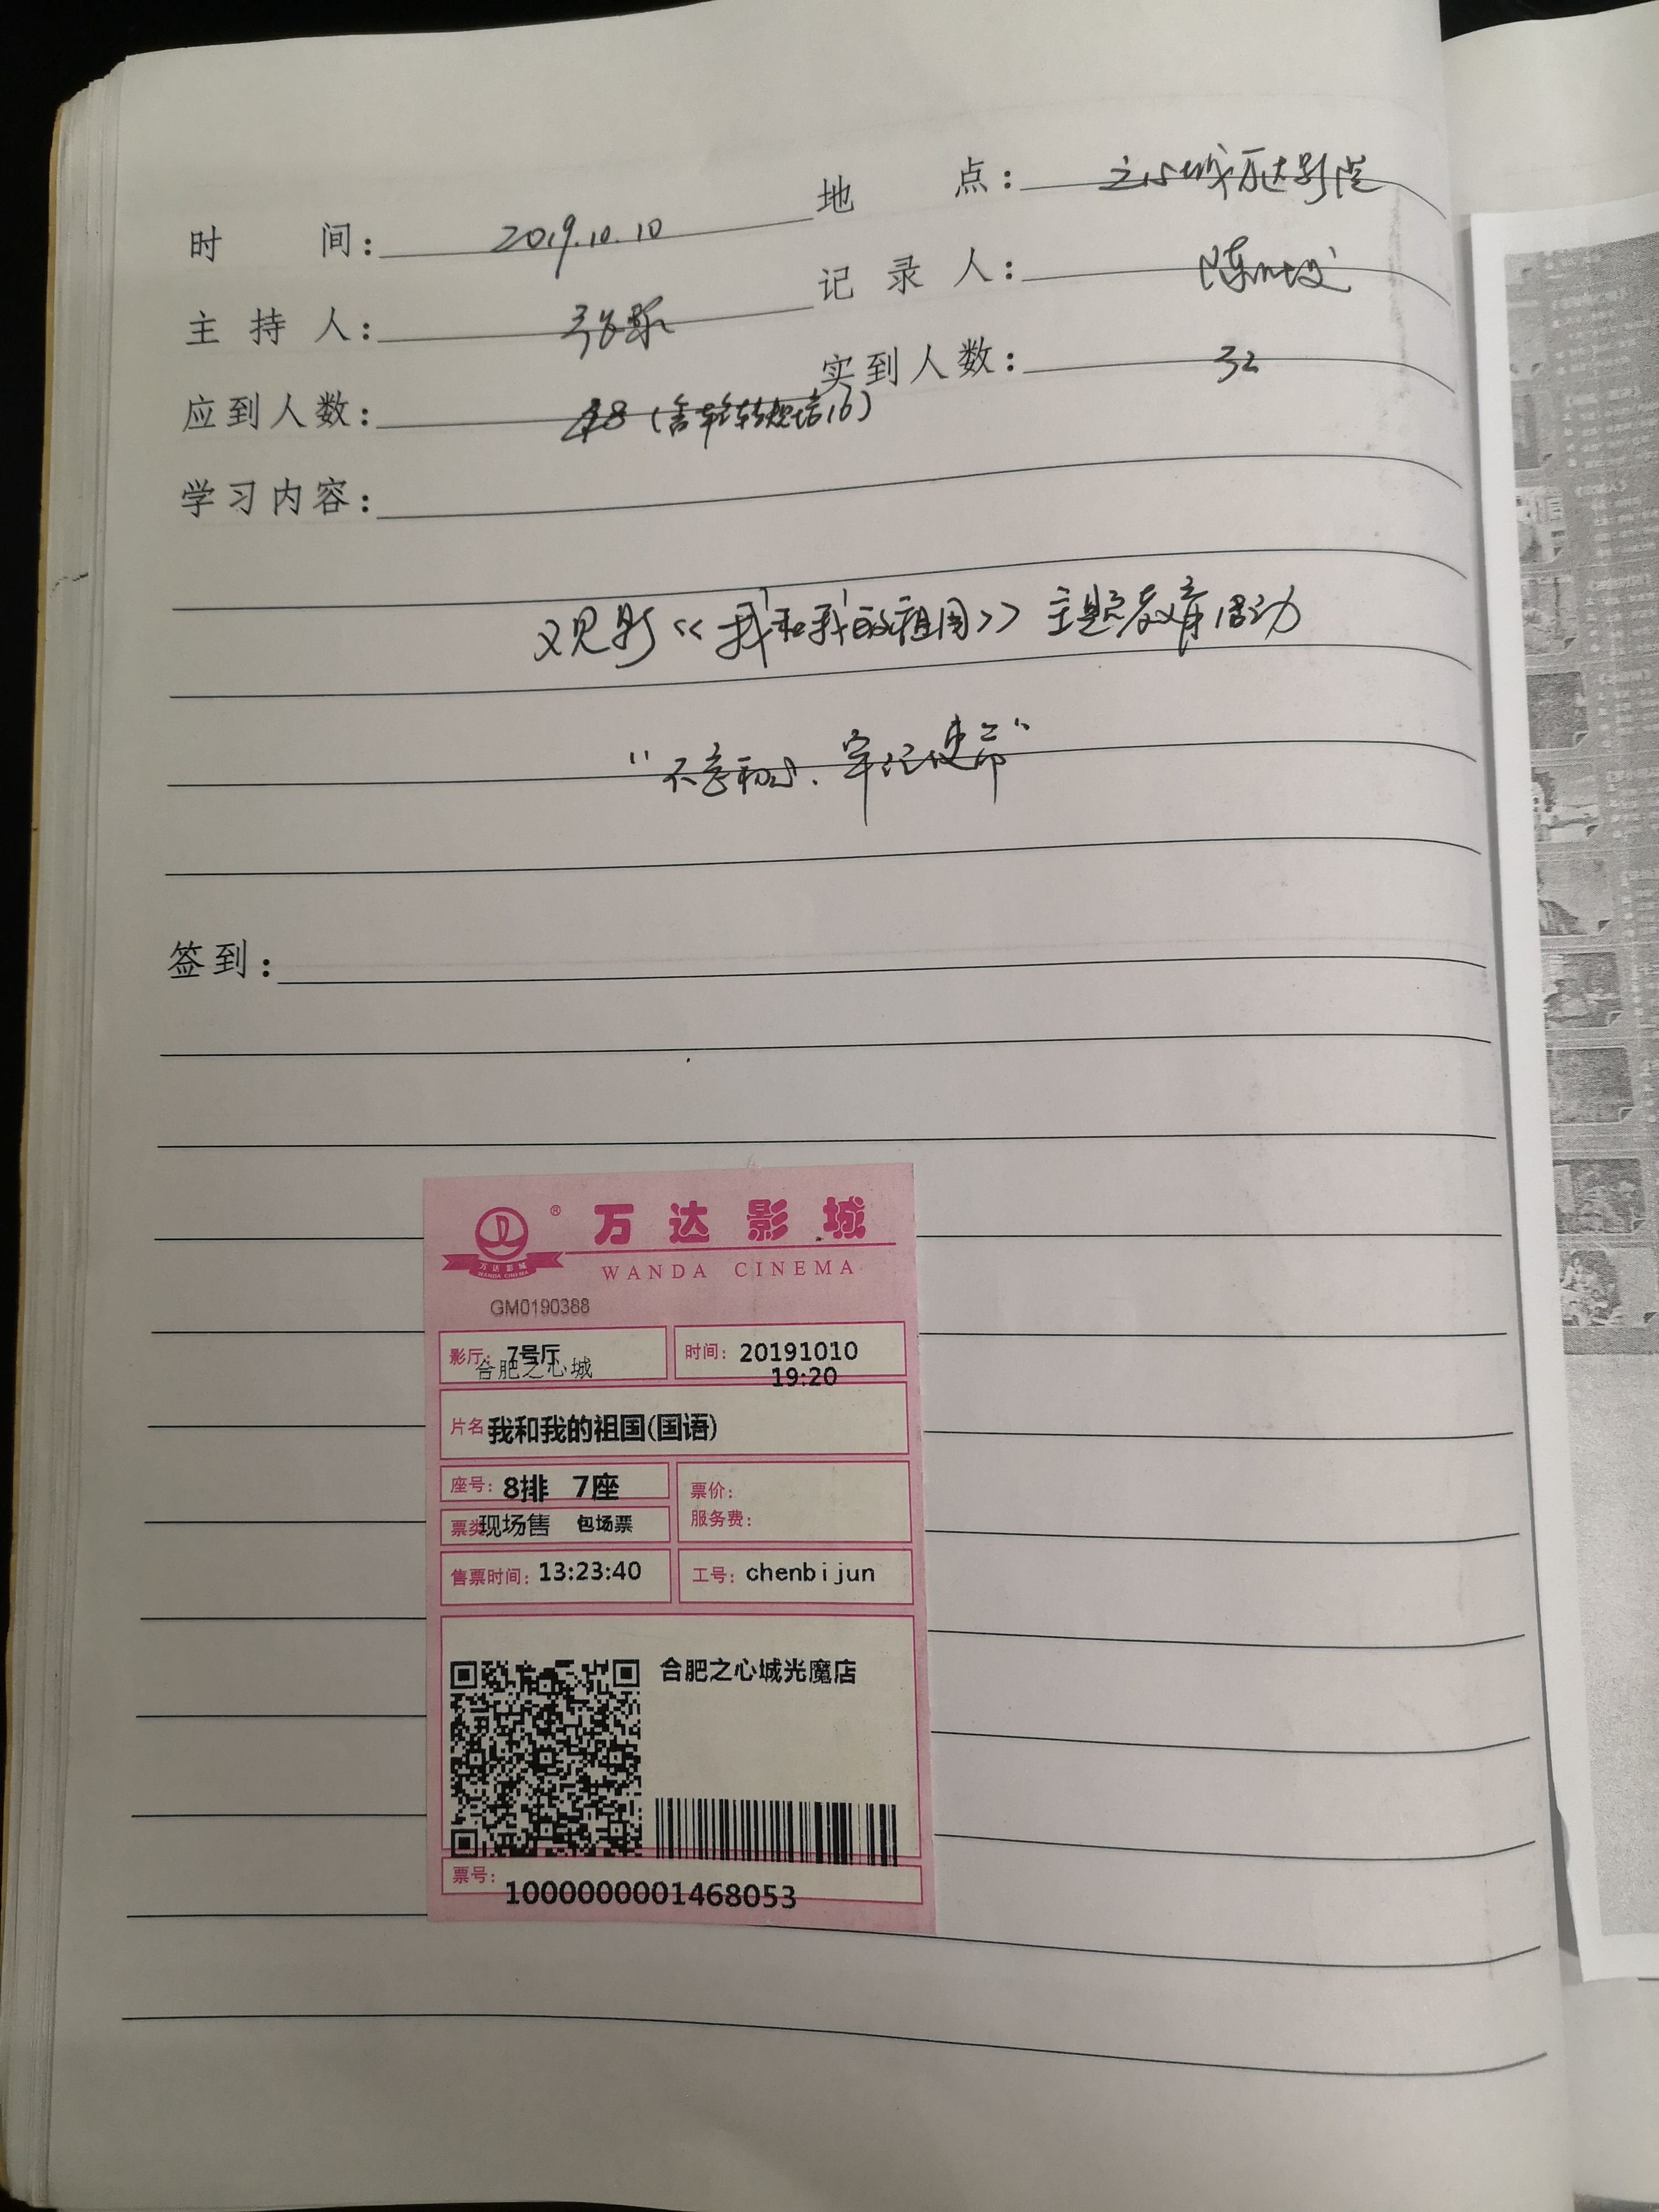 时 间： 2019.10.10 地 点： 之心城万达影院
主 持 人： 记 录 人：
应到人数： 48（含 16） 实到人数： 32
学习内容：
观影《我和我的祖国》主题教育活动
“不忘初心、牢记使命”
签到：
® 万达影城
万达影城
WANDA CINEMA
WANDA CINEMA
GM0190388
影厅： 7号厅 时间： 20191010
合肥之心城 19:20
片名 我和我的祖国(国语)
座号： 8排 7座 票价：
票类 现场售 包场票 服务费：
售票时间： 13:23:40 工号： chenbijun
合肥之心城光魔店
票号：
1000000001468053